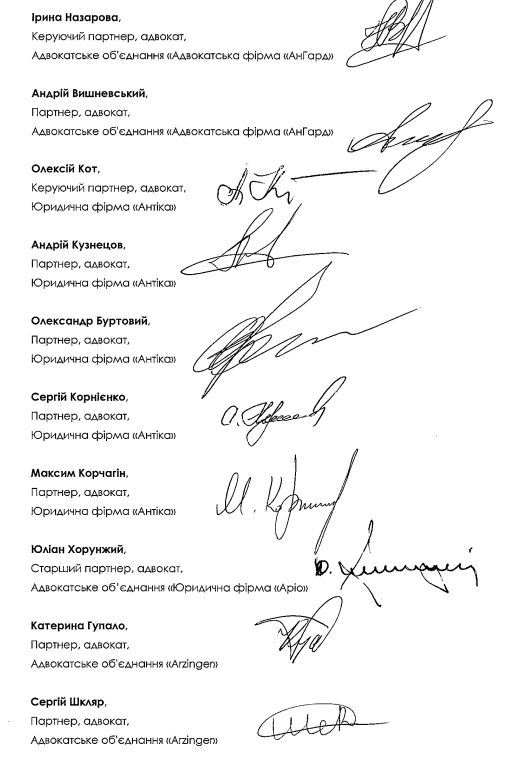 Ірина Назарова,
Керуючий партнер, адвокат,
Адвокатське об'єднання «Адвокатська фірма «АнГард»
Андрій Вишневський,
Партнер, адвокат,
Адвокатське об'єднання «Адвокатська фірма «АнГард»
Олексій Кот,
Керуючий партнер, адвокат,
Юридична фірма «Антіка»
Андрій Кузнецов,
Партнер, адвокат,
Юридична фірма «Антіка»
Олександр Буртовий,
Партнер, адвокат,
Юридична фірма «Антіка»
Сергій Корнієнко,
Партнер, адвокат,
Юридична фірма «Антіка»
Максим Корчагін,
Партнер, адвокат,
Юридична фірма «Антіка»
Юліан Хорунжий,
Старший партнер, адвокат,
Адвокатське об'єднання «Юридична фірма «Аріо»
Катерина Гупало,
Партнер, адвокат,
Адвокатське об'єднання «Arzinger»
Сергій Шкляр,
Партнер, адвокат,
Адвокатське об'єднання «Arzinger»